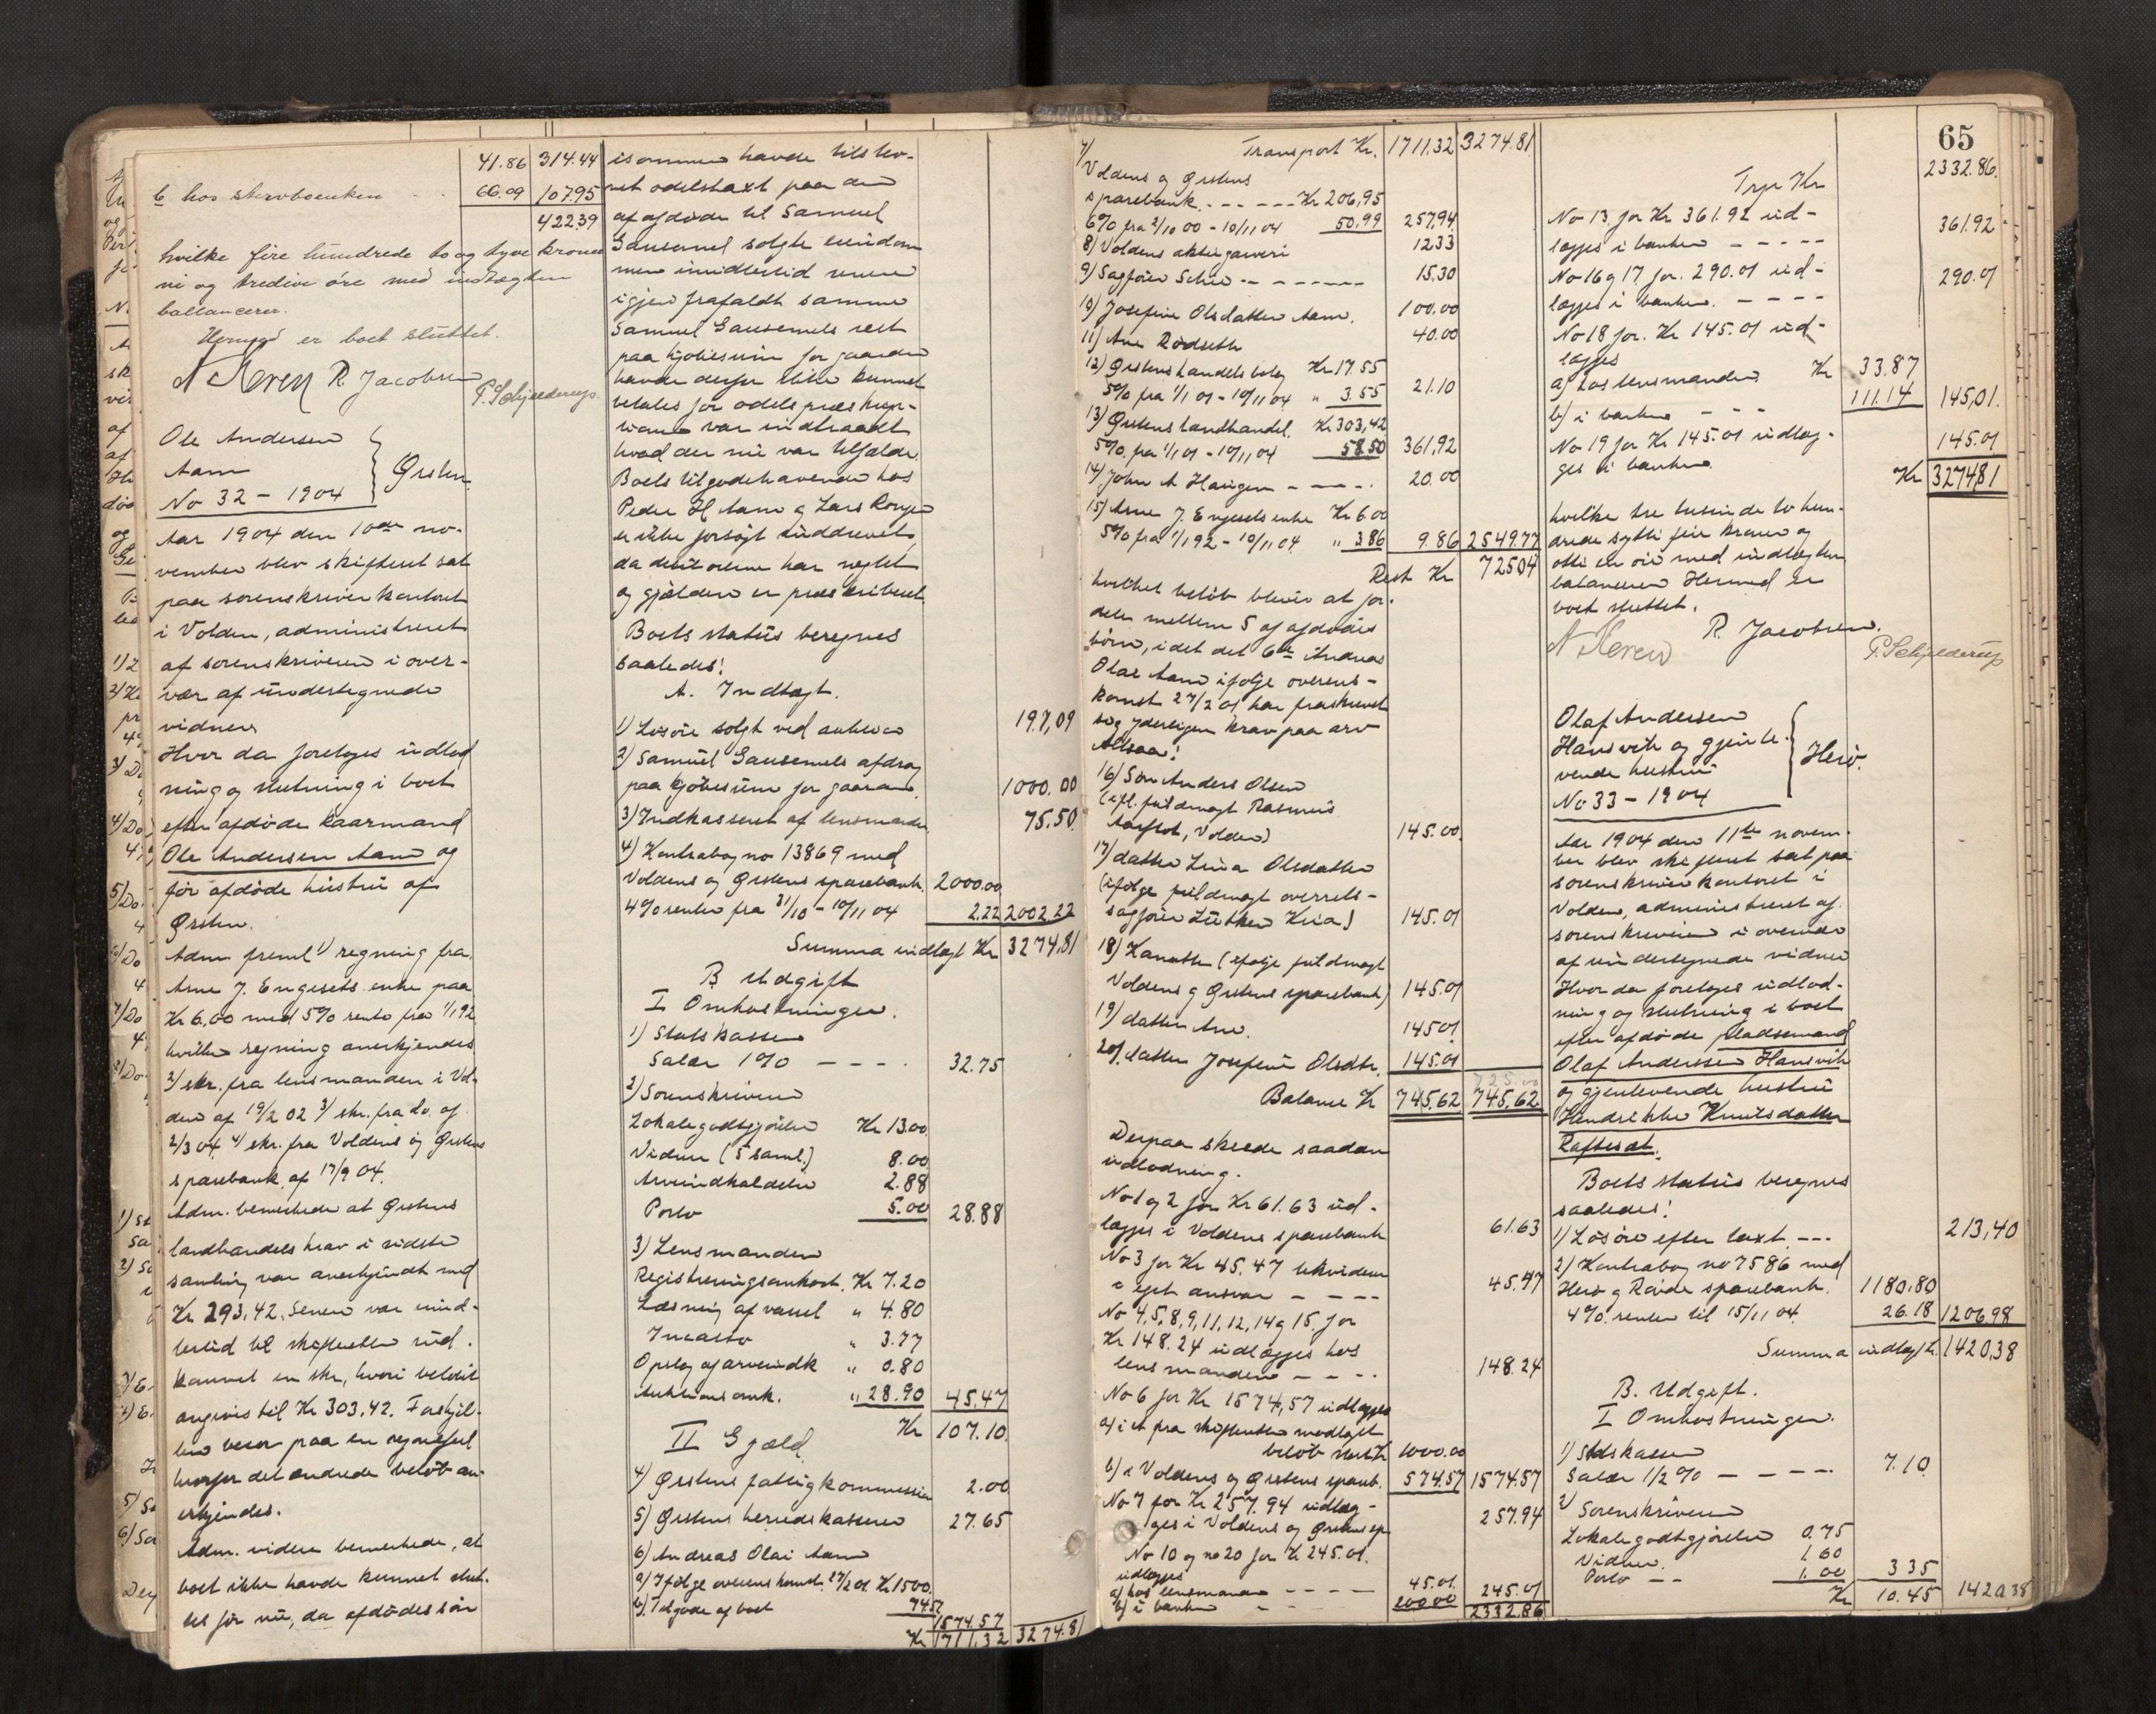 41.86 314.44
b hos skrvboenken 66.09 107.95
422.39
hvilke fire hundrede to og tyve kroner
ni og tredive øre med indtægten
ballancerer.
Hermed er boet sluttet.
R. Jacobsen
P. Schjelderup.
Ole Andersen
Aam
No 32 - 1904
Ørsten
Aar 1904 den 10de no-
vember blev skifteret sat
paa sorenskriverkontoret
i Volden, administreret
af sorenskriveren i over-
vær af undertegnede
vidner
Hvor da foretoges udlod
ning og slutning i boet
efter afdøde kaarmand
Ole Andersen Aam og
før afdøde hustru af
Ørsten.
Adm freml 1) regning fra
Arne J. Engesets enke paa
Kr 6,00 med 5% rente fra 1/1 92
hvilken regning anerkjendes
2) skr. fra lensmanden i Vol-
den af 19/2 02 3) skr. fra do. af
2/3 04 4) skr. fra Voldens og Ørstens
sparebank af 17/9 04.
Adm. bemerkede at Ørstens
landhandels krav i sidste
samling var anerkjendt med
Kr 293,42. Senere var imid-
lertid til skifteretten ind-
kommet en skr, hvori beløbet
angives til Kr 303,42. Forskjel-
len beror paa en regnefeil
hvorfor det ændrede beløb an-
erkjendes.
Adm. videre bemerkede, at
boet ikke havde kunnet slut-
tes før nu, da afdødes søn
isommer havde tilskre-
vet odelstaxt paa den
af afdøde til Samuel
Gausemel solgte eiendom
men imidlertid senere
igjen frafaldt samme
Samuel Gausemels rest
paa kjøbesum for gaarden
havde derfor ikke kunnet
betales før odelspræskrip-
tionen var indtraadt
hvad der nu var tilfælde.
Boets tilgodehavende hos
Peder H Aam og Lars Rongen
er ikke forsøgt inddrevet,
da debitorerne har negtet
og gjælden er præskriberet
Boets status beregnes
saaledes:
A. Indtægt.
1) Løsøre solgt ved auktion 197,09
2) Samuel Gausemels afdrag
paa kjøbesum for gaarden 1000.00
3) Indkasseret af lensmanden 75.50
4) Kontrabog no 13869 med
Voldens og Ørstens sparebank 2000.00
4% renter fra 31/10 - 10/11 04 2.22 2002.22
Summa indtægt Kr 3274.81
B Udgift
I Omkostninger.
1) Statskassen
Salær 1% - - - 32.75
2) Sorenskriveren
Lokalegodtgjørelse Kr 13.00
Vidner (5 saml.) 8.00
Arveindkaldelse 2.88
Porto 5.00 28.88
3) Lensmanden
Registreringsomkost. Kr 7.20
Læsning af varsel " 4.80
Incasso " 3.77
Opslag af arveindk " 0.80
Auktionsomk. " 28.90 45.47
Kr 107.10
II Gjæld
4) Ørstens fattigkommission 2.00
5) Ørstens herredskasserer 27.65
6) Andreas Olai Aam
a) Ifølge overenskomst 27/2 01 Kr 1500
b) Tilgode af boet 74.57
1574.57
Kr 1711.32 3274.81
65
Transport Kr. 1711.32 3274.81
7)
Voldens og Ørstens
sparebank - - - - Kr 206,95
6% fra 2/10 00 - 10/11 04 50.99 257.94
8) Voldens aktiegarveri 12.33
9) Sagfører Schee - - - - - 15.30
10) Josefine Olsdatter Aam. 100.00
11) Ane Rødseth 40.00
12) Ørstens handelsbolag Kr 17.55
5% fra 1/1 01 - 10/11 04 " 3.55 21.10
13) Ørstens landhandel. Kr 303,42
5% fra 1/1 01 - 10/11 04 58.50 361,92
14) John A Haugen - - - - 20.00
15) Arne J. Engesets enke Kr 6.00
5% fra 1/1 92 - 10/11 04 " 3.86 9.86 2549.77
Rest Kr 725.04
hvilket beløb bliver at for-
dele mellem 5 af afdødes
børn, idet det 6te Andreas
Olai Aam ifølge overens-
komst 27/2 01 har fraskrevet
sig yderligere krav paa arv
Altsaa:
16) Søn Anders Olsen
(ifl. fuldmagt Rasmus
Aarflot, Volden) 145.00
17) datter Lina Olsdatter
(ifølge fuldmagt overrets-
sagfører Lütken Kria) 145.01
18) Kanutte (ifølge fuldmagt
Voldens og Ørstens sparebank) 145.01
19) datter Ane. 145.01
20) datter Josefine Olsdtr. 145.01
Balance Kr 745.62 745.62
Derpaa skeede saadan
udlodning.
No 1 og 2 for Kr 61.63 ud-
lægges i Voldens sparebank 61.63
No 3 for Kr 45.47 likvideres
eget ansvar - - - 45.47
No 4, 5, 8, 9, 11, 12, 14 og 15 for
Kr 148.24 udlægges hos
lensmanden - - - 148.24
No 6 for Kr 1574,57 udlægges
a) i et fra skifteretten modtaget
beløb stort Kr 1000.00
b) i Voldens og Ørstens spareb. 574.57 1574.57
No 7 for Kr 257.94 udlæg-
ges i Voldens og Ørstens sp 257.94
No 10 og no 20 for Kr 245.01.
udlægges
a) hos lensmanden - - - - 45.01
b) i banken - - 200.00 245.01
2332.86
Trp Kr 2332.86.
No 13 for Kr 361.92 ud-
lægges i banken - - - - 361.92
No 16 og 17 for 290.01 ud-
lægges i banken. - - - - 290.01
No 18 for Kr 145.01 ud-
lægges
a) hos lensmanden Kr 33.87
b) i banken - - - 111.14 145,01.
No 19 for Kr 145.01 udlæg-
ges i banken. 145.01
Kr 3274.81
hvilke tre tusinde to hun-
drede sytti fire kroner og
otti en øre med indtægten
balancerer Hermed er
boet sluttet.
R. Jacobsen.
P. Schjelderup
Olaf Andersen
Hansvik og gjenle-
vende hustru
No 33 - 1904
Herø.
Aar 1904 den 11te novem-
ber blev skifteret sat paa
sorenskriverkontoret i
Volden, administreret af
sorenskriveren i overvær
af undertegnede vidner
Hvor da foretoges udlod-
ning og slutning i boet
efter afdøde pladsemand
Olaf Andersen Hansvik
og gjenlevende hustru
Hendrikke Knutsdatter
Raftesæt.
Boets status beregnes
saaledes:
1) Løsøre efter taxt - - - 213,40
2) Kontrabog no 7586 med
Herø og Røvde sparebank. 1180.80
4% renter til 15/11 04. 26.18 1206.98
Summa indtægt Kr. 1420,38
B. Udgift.
I Omkostninger.
1) Statskassen
Salær 1/2% - - - - 7.10
2) Sorenskriveren
Lokalegodtgjørelse 0.75
Vidner. 1.60
Porto - - 1.00 3.35
Kr 10.45 1420.38